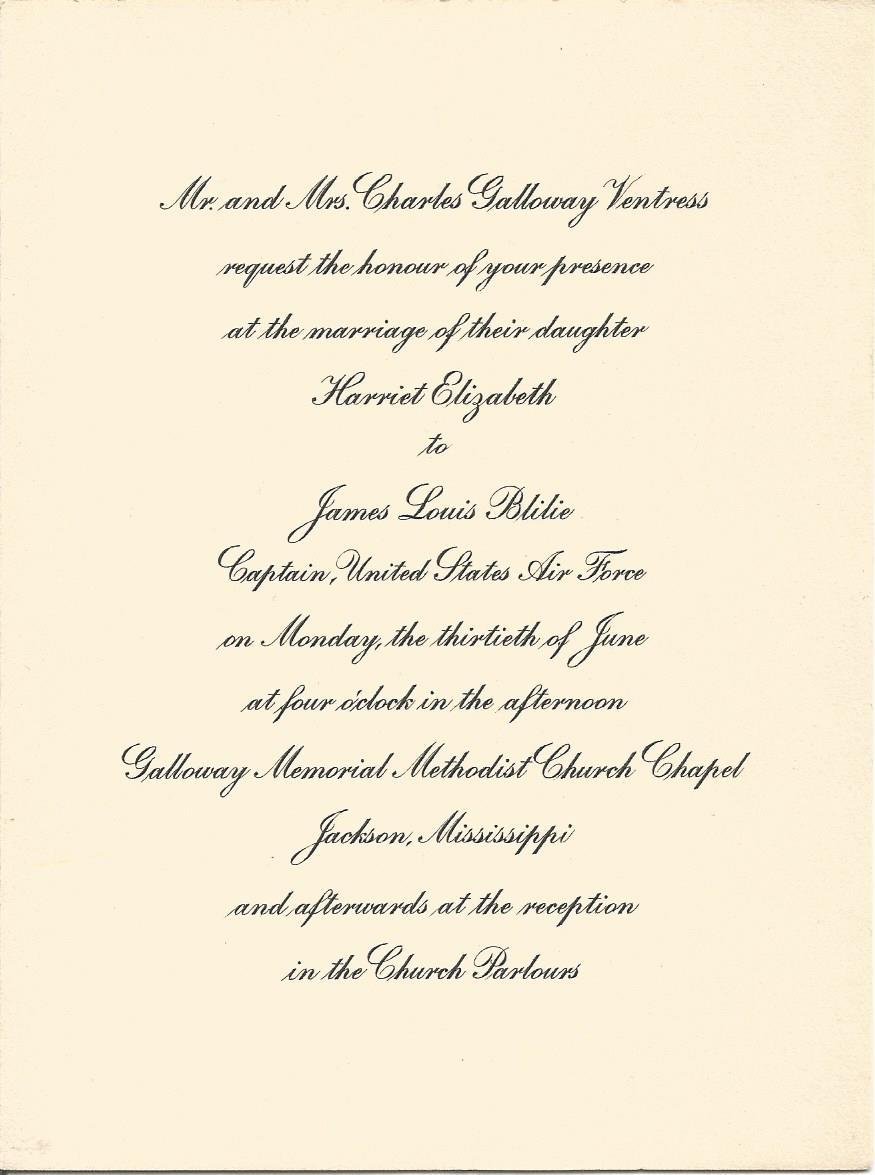 Mr. and Mrs. Charles Galloway Ventress
request the honour of your presence
at the marriage of their daughter
Harriet Elizabeth
to
James Louis Blilie
Captain, United States Air Force
on Monday, the thirtieth of June
at four o'clock in the afternoon
Galloway Memorial Methodist Church Chapel
Jackson, Mississippi
and afterwards at the reception
in the Church Parlours